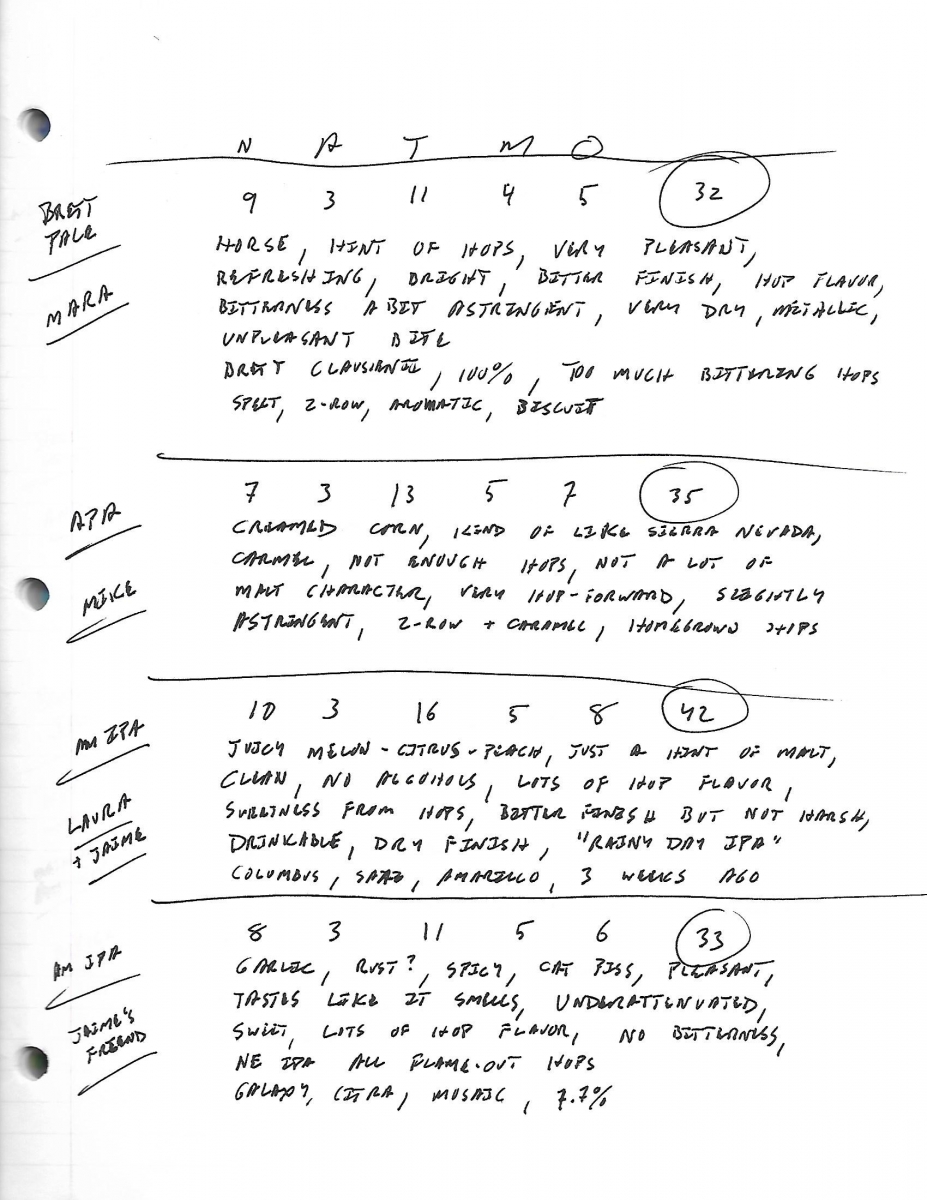 N A T M O
BRETT PALE
9 3 11 4 5 32
HORSE, HINT OF HOPS, VERY PLEASANT,
REFRESHING, BRIGHT, BITTER FINISH, HOP FLAVOR,
MARA
BITTERNESS A BIT ASTRINGENT, VERY DRY, METALLIC,
UNPLEASANT BITE
BRETT CLAUSIENII, 100%, TOO MUCH BITTERING HOPS
SPELT, 2-ROW, AROMATIC, BISCUIT
APA
7 3 13 5 7 35
CREAMED CORN, KIND OF LIKE SIERRA NEVADA,
CARMEL, NOT ENOUGH HOPS, NOT A LOT OF
MIKE
MALT CHARACTER, VERY HOP-FORWARD, SLIGHTLY
ASTRINGENT, 2-ROW + CARAMEL, HOMEGROWN HOPS
AM IPA
10 3 16 5 8 42
JUICY MELON-CITRUS-PEACH, JUST A HINT OF MALT,
CLEAN, NO ALCOHOLS, LOTS OF HOP FLAVOR,
LAURA
+ JAIME
SWEETNESS FROM HOPS, BITTER FINISH BUT NOT HARSH,
DRINKABLE, DRY FINISH, "RAINY DAY IPA"
COLUMBUS, SAAZ, AMARILLO, 3 WEEKS AGO
AM IPA
8 3 11 5 6 33
GARLIC, RUST?, SPICY, CAT PISS, PLEASANT,
TASTES LIKE IT SMELLS, UNDERATTENUATED,
JAIME'S
FRIEND
SWEET, LOTS OF HOP FLAVOR, NO BITTERNESS,
NE IPA ALL FLAME-OUT HOPS
GALAXY, CITRA, MOSAIC, 7.7%